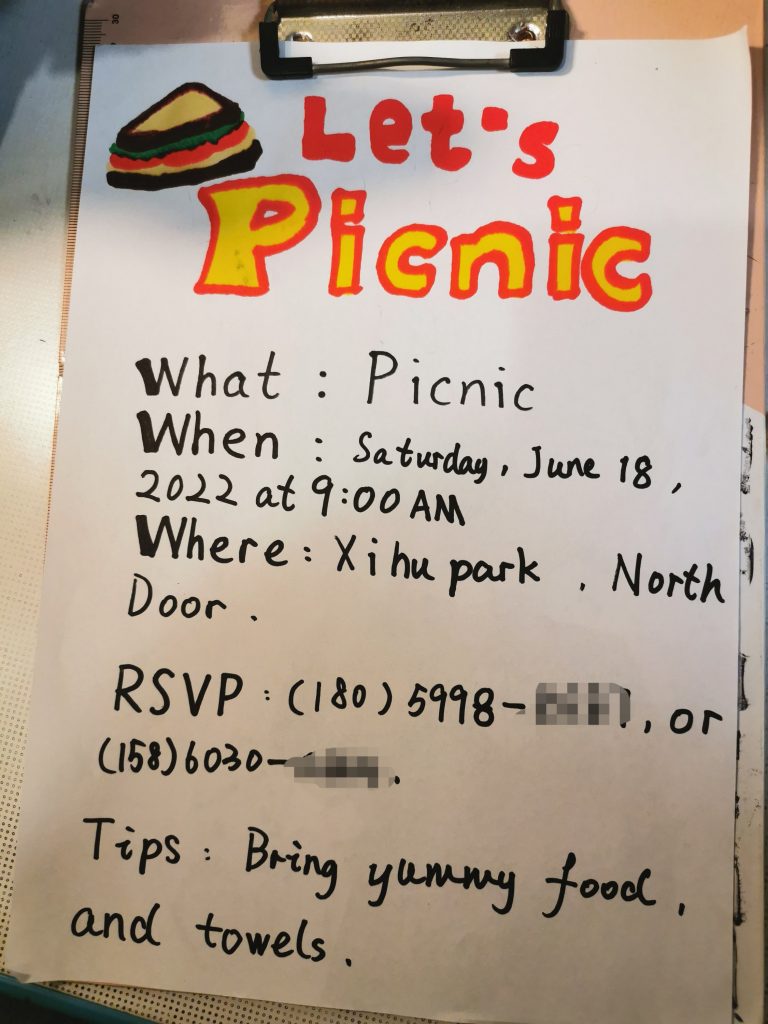 Let's
Picnic
What : Picnic
When : Saturday, June 18,
2022 at 9:00 AM
Where : Xihu park , North
Door .
RSVP : (180) 5998- , or
(158) 6030- .
Tips : Bring yummy food ,
and towels .